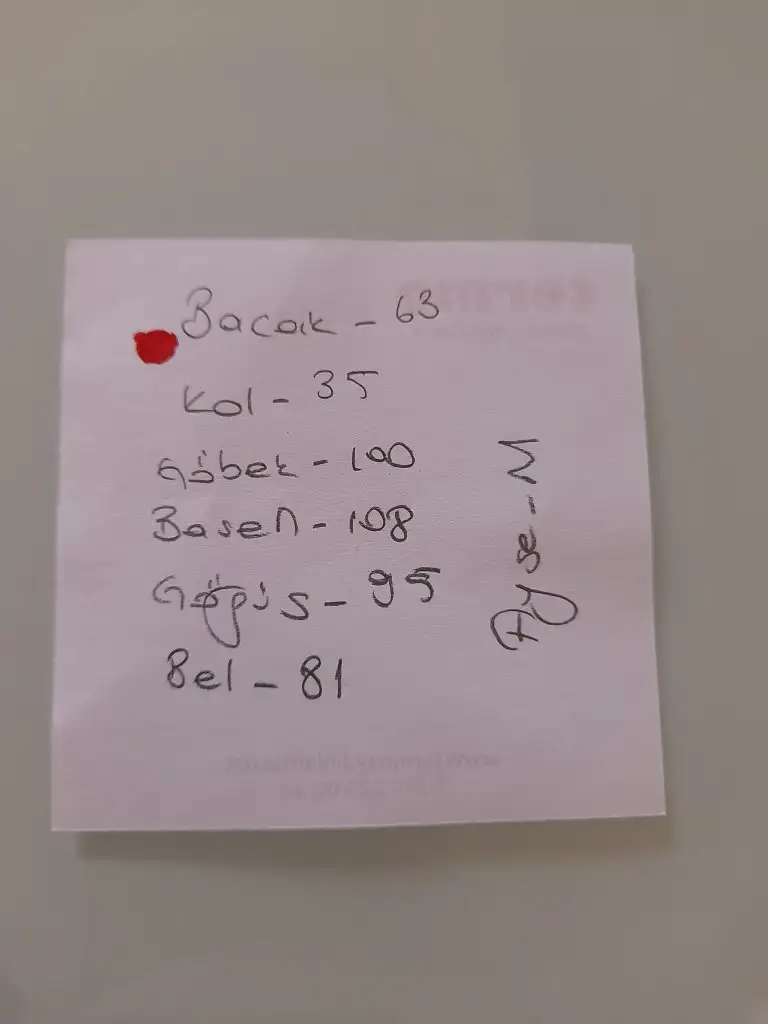 Bacak - 63
Kol - 35
Göbek - 100
Basen - 108
Göğüs - 95
Bel - 81
Ayse - M